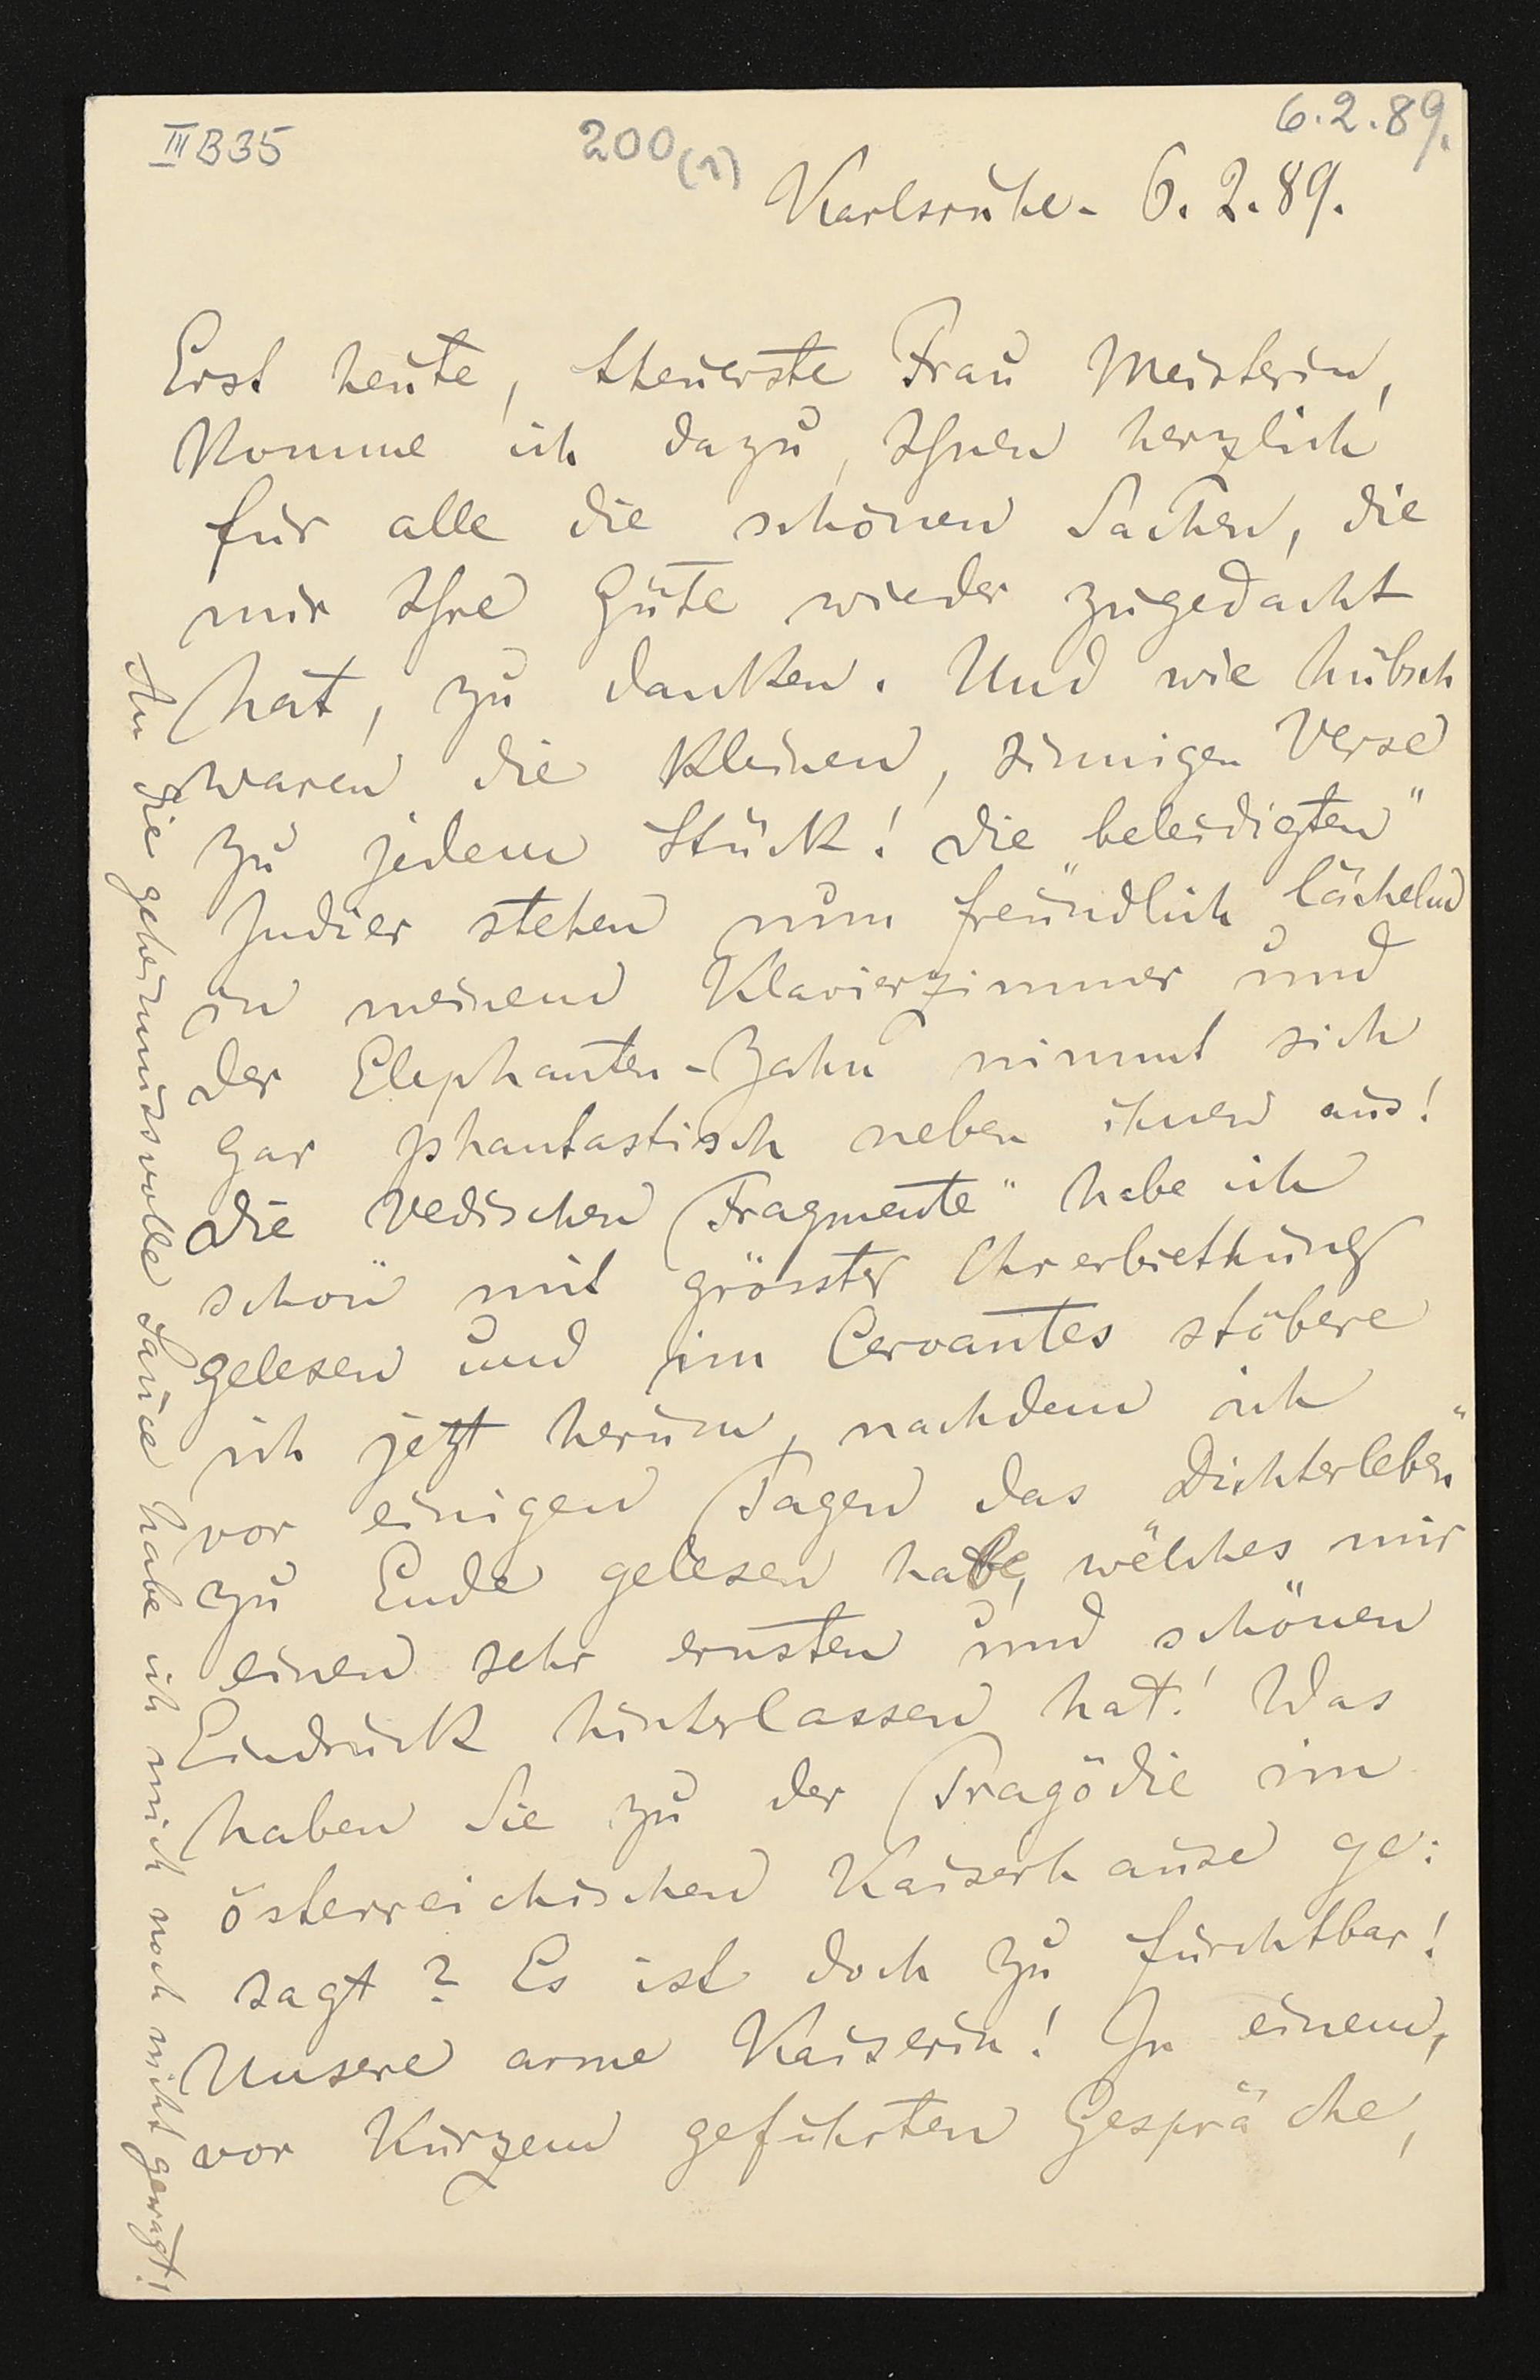 III B35
200(1)
6.2.89.
Karlsruhe - 6. 2. 89.
Erst heute, theuerste Frau Meisterin,
komme ich dazu, Ihnen herzlich
für alle die schönen Sachen, die
mir Ihre Güte wieder zugedacht
hat, zu danken. Und wie hübsch
waren die kleinen, sinnigen Verse
zu jedem Stück! Die „beleidigten"
Indier stehen nun freundlich lächelnd
in meinem Klavierzimmer und
der Elephanten-Zahn nimmt sich
gar phantastisch neben ihnen aus!
Die Vedischen Fragmente" habe ich
schon mit grösster Ehrerbiethung
gelesen und im Cervantes stöbere
ich jetzt herum, nachdem ich
vor einigen Tagen das „Dichterleben"
zu Ende gelesen habe, welches mir
einen sehr ernsten und schönen
Eindruck hinterlassen hat! Was
haben Sie zu der Tragödie im
österreichischen Kaiserhause ge:
sagt? Es ist doch zu furchtbar!
Unsere arme Kaiserin! In einem,
vor Kurzem geführten Gespräche,
An die geheimnisvolle Sauce habe ich mich noch nicht gewagt!